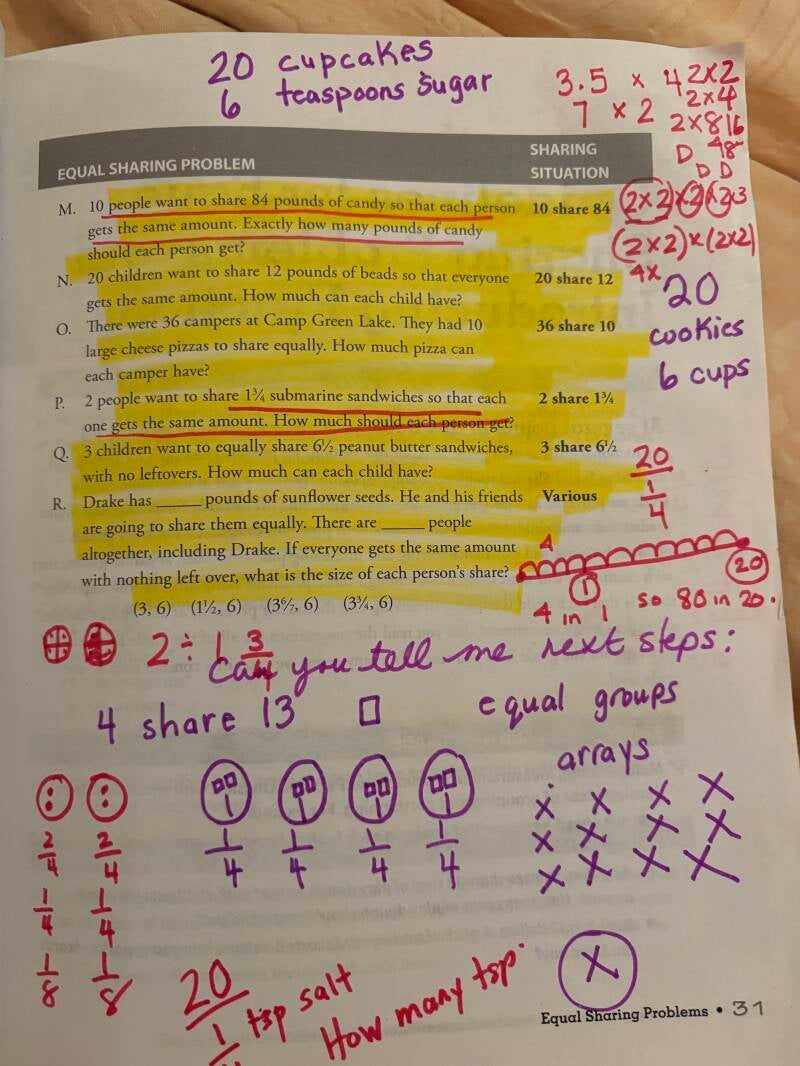 20 cupcakes
6 teaspoons sugar
3.5 x 4
7 x 2
2x2
2x4
2x8 16
D 48
D D
EQUAL SHARING PROBLEM
SHARING SITUATION
M. 10 people want to share 84 pounds of candy so that each person
gets the same amount. Exactly how many pounds of candy
should each person get?
10 share 84
N. 20 children want to share 12 pounds of beads so that everyone
gets the same amount. How much can each child have?
20 share 12
O. There were 36 campers at Camp Green Lake. They had 10
large cheese pizzas to share equally. How much pizza can
each camper have?
36 share 10
P. 2 people want to share 1¾ submarine sandwiches so that each
one gets the same amount. How much should each person get?
2 share 1¾
Q. 3 children want to equally share 6½ peanut butter sandwiches,
with no leftovers. How much can each child have?
3 share 6½
R. Drake has _____ pounds of sunflower seeds. He and his friends
are going to share them equally. There are _____ people
altogether, including Drake. If everyone gets the same amount
with nothing left over, what is the size of each person's share?
Various
(3, 6) (1½, 6) (3 6/7, 6) (3¾, 6)
(2x2)x2x2x3
(2x2)x(2x2)
4x
20
cookies
6 cups
20
1/4
4
1
20
4 in 1 so 80 in 20.
2 ÷ 1 3/4
Can you tell me next steps:
4 share 13
equal groups
arrays
1 1 1 1
1/4 1/4 1/4 1/4
X X X X
X X X X
X X X X
2/4 2/4
1/4 1/4
1/8 1/8
20
tsp salt
How many tsp.
X
Equal Sharing Problems • 31